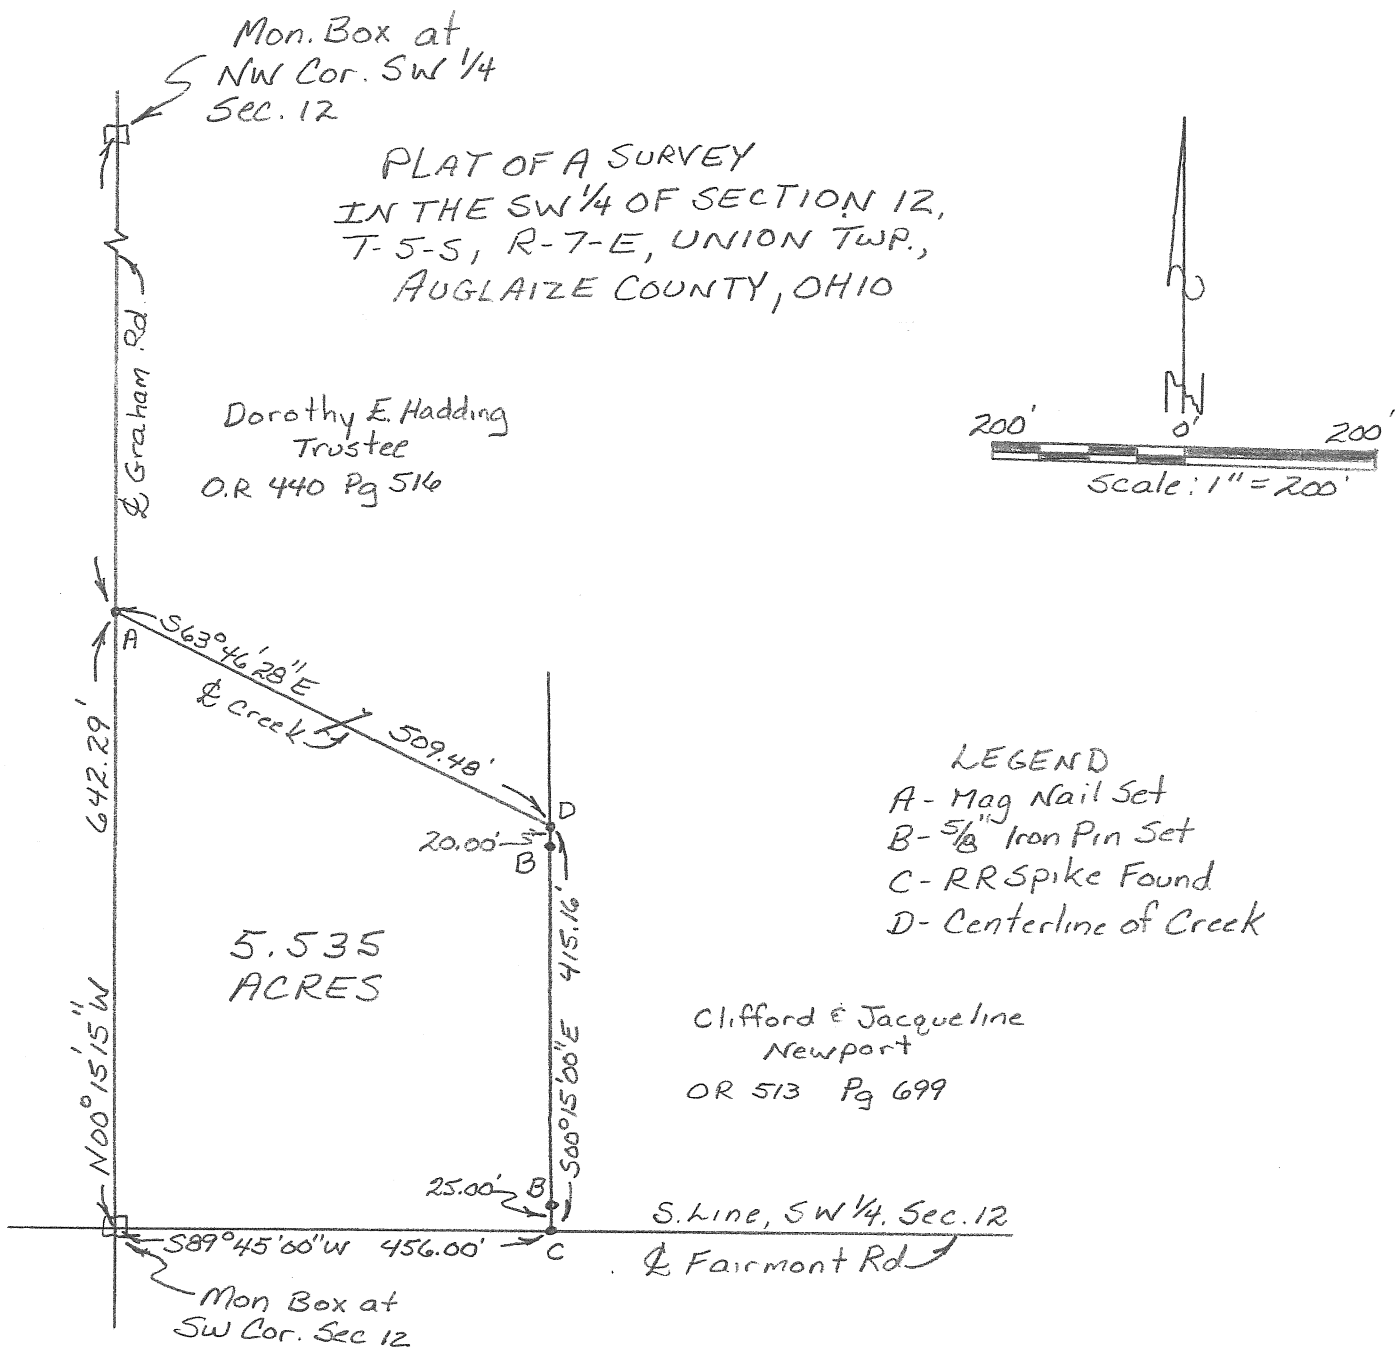 Mon. Box at
NW Cor. SW 1/4
Sec. 12
PLAT OF A SURVEY
IN THE SW 1/4 OF SECTION 12,
T-5-S, R-7-E, UNION TWP.,
AUGLAIZE COUNTY, OHIO
N
200' 0' 200'
Scale: 1" = 200'
℄ Graham Rd.
Dorothy E. Hadding
Trustee
O.R 440 Pg 516
A
S63°46'28"E 509.48'
℄ Creek
D
20.00'
B
642.29'
N00°15'15"W
415.16'
S00°15'00"E
5.535
ACRES
LEGEND
A- Mag Nail Set
B- 5/8" Iron Pin Set
C- RR Spike Found
D- Centerline of Creek
Clifford & Jacqueline
Newport
OR 513 Pg 699
25.00'
B
S. Line, SW 1/4. Sec. 12
S89°45'00"W 456.00'
C
℄ Fairmont Rd
Mon Box at
SW Cor. Sec 12